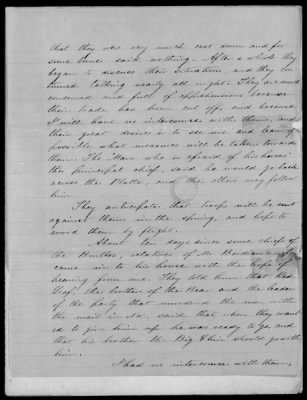 that they was very much cast down and for
some time said nothing. After a while they
began to discuss their situation, and they con
tinued talking nearly all night. They are much
concerned and full of apprehensions because
their trade has been cut off, and because
I will have no intercourse with them, and
their great desire is to see me and learn if
possible what measures will be taken towards
them. The Man who is afraid of his horses
the principal chief, said he would go back
across the Platte, and the others may follow
him.
They anticipate that troops will be sent
against them in the spring, and hope to
avoid them by flight.
About ten days since some chiefs of
the Brulés, relatives of Mr. Bordeau's wife
came in to his house with the hope of
hearing from me. They told him that Red
Leaf the brother of the Bear and the leader
of the party that murdered the men with
the mail in Nov. said that when they want
ed to give him up he was ready to go, and
that his brother the Big Chin should go with
him.
I had no intercourse with them,